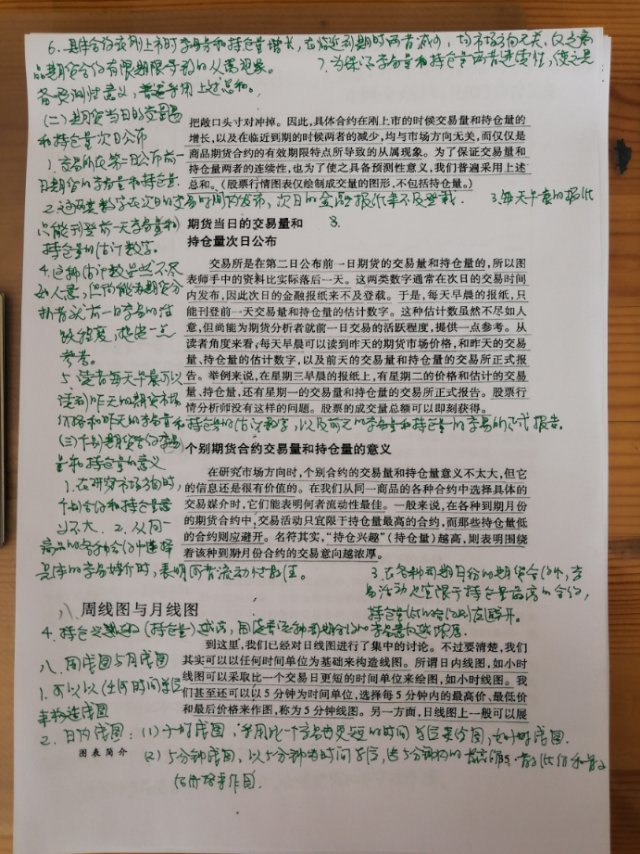 6. 具体合约在刚上市时交易量和持仓量增长，在临近到期时两者减少，均与市场方向无关，仅是商
品期货合约有限期限导致的从属现象。
7. 为保证交易量和持仓量两者连续性，使之具
各预测性意义，普遍采用上述总和。
(二) 期货当日的交易量
和持仓量次日公布
1. 交易所在第二日公布前一
日期货的交易量和持仓量.
2. 这两类数字在次日的交易时间内发布，次日的金融报纸来不及登载.
3. 每天早晨的报纸
只能刊登前一天交易量和
持仓量的估计数字.
4. 这种估计数虽然不尽
如人意，但尚能为期货分
析者就前一日交易的活
跃程度，提供一点
参考。
5. 读者每天早晨可以
读到昨天的期货市场
价格和昨天的交易量和持仓量的估计数字，以及前天的交易量和持仓量的交易所正式报告。
(三) 个别期货合约交易
量和持仓量的意义
1. 在研究市场方向时，
个别合约和持仓量意
义不大. 2. 从同一
商品的各种合约中选择
具体的交易媒介时，表明何者流动性最佳。
3. 在各种到期月份的期货合约中，交
易活动只宜限于持仓量最高的合约，
持仓量低的合约则应避开。
4. 持仓兴趣(持仓量)越高，围绕着该种到期合约的交易意向越浓厚.
八. 周线图与月线图
1. 可以以任何时间单位
来构造线图
2. 日内线图：(1) 小时线图，采用比一个交易日更短的时间单位来绘图，如小时线图.
(2) 5分钟线图，以5分钟为时间单位，选5分钟内的最高价、最低价和最后
价格来作图.
把敞口头寸对冲掉。因此，具体合约在刚上市的时候交易量和持仓量的
增长，以及在临近到期的时候两者的减少，均与市场方向无关，而仅仅是
商品期货合约的有效期限特点所导致的从属现象。为了保证交易量和
持仓量两者的连续性，也为了使之具备预测性意义，我们普遍采用上述
总和。(股票行情图表仅绘制成交量的图形，不包括持仓量。)
期货当日的交易量和
持仓量次日公布
交易所是在第二日公布前一日期货的交易量和持仓量的，所以图
表师手中的资料比实际落后一天。这两类数字通常在次日的交易时间
内发布，因此次日的金融报纸来不及登载。于是，每天早晨的报纸，只
能刊登前一天交易量和持仓量的估计数字。这种估计数虽然不尽如人
意，但尚能为期货分析者就前一日交易的活跃程度，提供一点参考。从
读者角度来看，每天早晨可以读到昨天的期货市场价格，和昨天的交易
量、持仓量的估计数字，以及前天的交易量和持仓量的交易所正式报
告。举例来说，在星期三早晨的报纸上，有星期二的价格和估计的交易
量、持仓量，还有星期一的交易量和持仓量的交易所正式报告。股票行
情分析师没有这样的问题。股票的成交量总额可以即刻获得。
个别期货合约交易量和持仓量的意义
在研究市场方向时，个别合约的交易量和持仓量意义不太大，但它
的信息还是很有价值的。在我们从同一商品的各种合约中选择具体的
交易媒介时，它们能表明何者流动性最佳。一般来说，在各种到期月份
的期货合约中，交易活动只宜限于持仓量最高的合约，而那些持仓量低
的合约则应避开。名符其实，“持仓兴趣”(持仓量)越高，则表明围绕
着该种到期月份合约的交易意向越浓厚。
八 周线图与月线图
到这里，我们已经对日线图进行了集中的讨论。不过要清楚，我们
其实可以以任何时间单位为基础来构造线图。所谓日内线图，如小时
线图可以采取比一个交易日更短的时间单位来绘图，如小时线图。我
们甚至还可以以5分钟为时间单位，选择每5分钟内的最高价、最低价
和最后价格来作图，称为5分钟线图。另一方面，日线图上一般可以展
图表简介